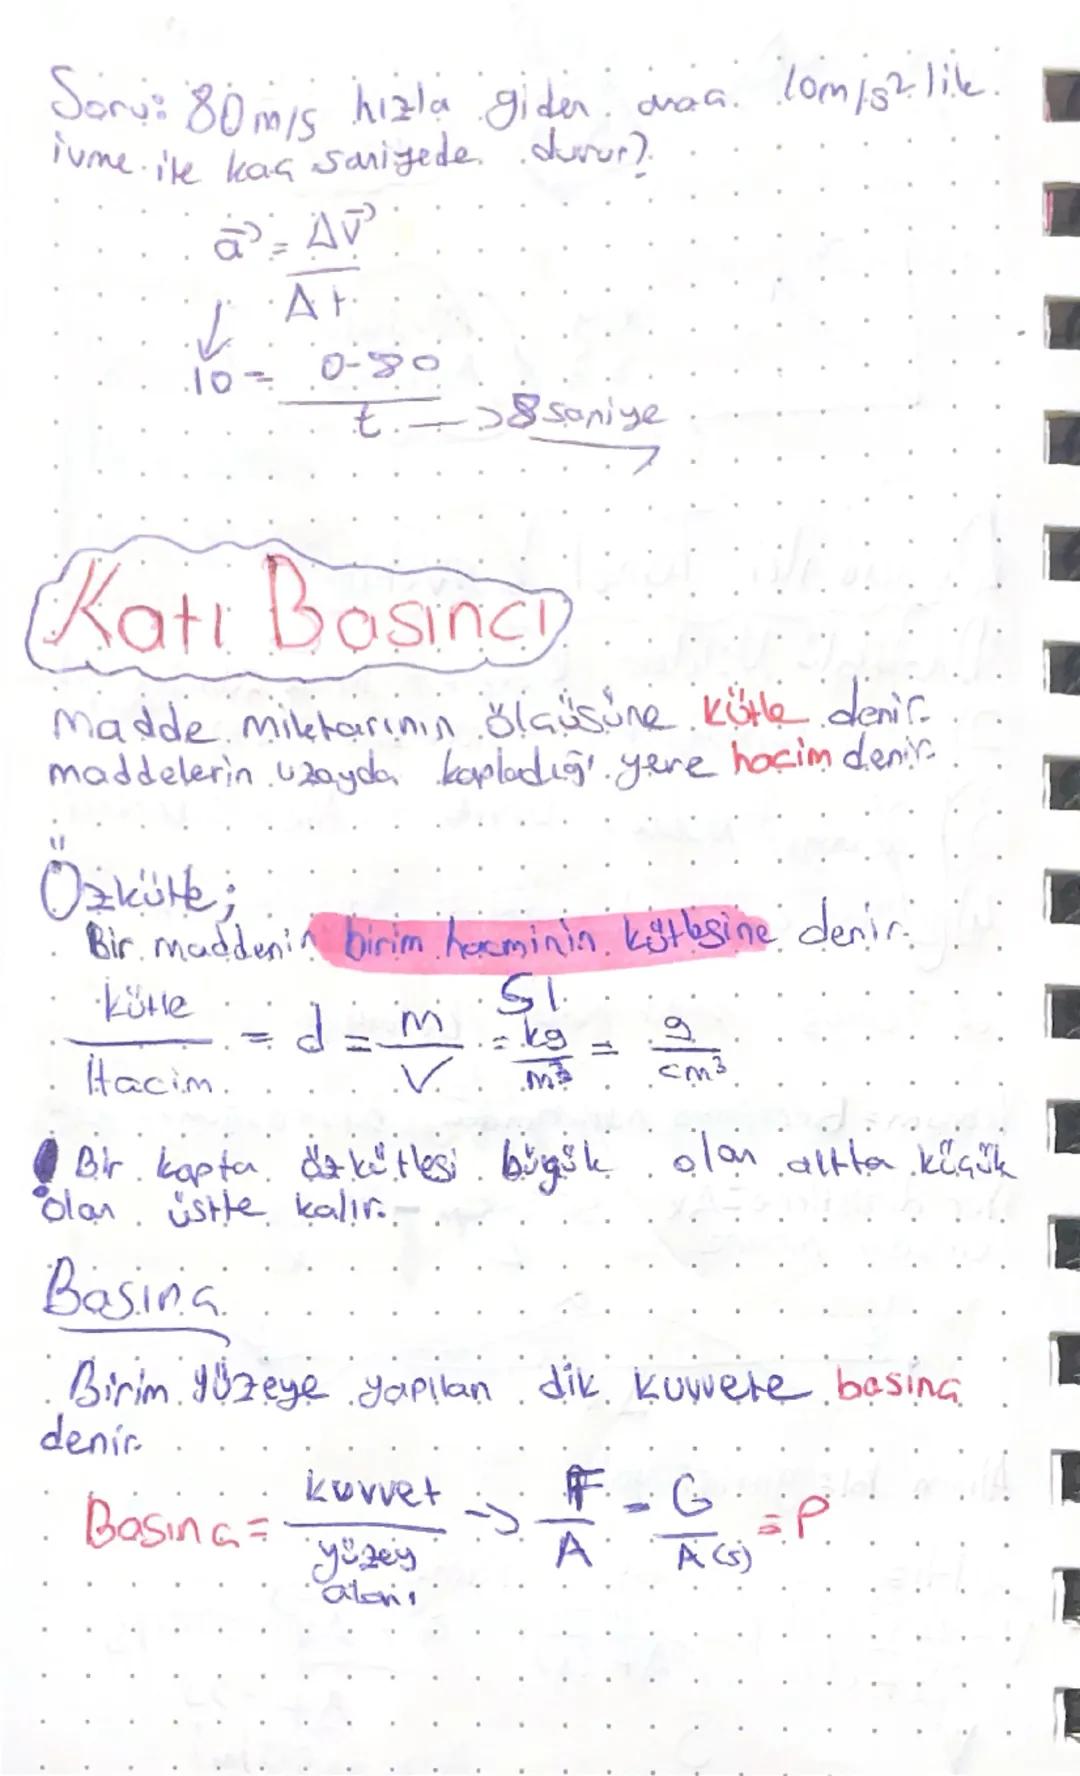 Soru: 80 m/s hızla giden araç 10 m/s² lik
ivme ile kaç saniyede durur?
a⃗ = ΔV⃗
Δt
↓
10 = 0-80
t → 8 saniye
Katı Basıncı
Madde miktarının ölçüsüne kütle denir.
maddelerin uzayda kapladığı yere hacim denir.
Özkütle;
Bir maddenin birim hacminin kütlesine denir.
SI
kütle / Hacim = d = m / V = kg / m³ = g / cm³
! Bir kapta özkütlesi büyük olan altta küçük
olan üstte kalır.
Basınç
Birim yüzeye yapılan dik kuvvete basınç
denir.
Basınç = kuvvet / yüzey alanı → F / A = G / A(s) = P